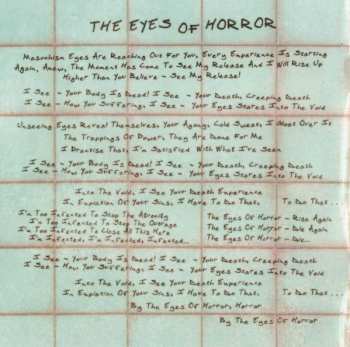 THE EYES OF HORROR
Masochism Eyes Are Reaching Out For You, Every Experience Is Starting
Again, Anew, The Moment Has Come To See My Release And I Will Rise Up
Higher Than You Believe - See My Release!
I See - Your Body Is Dead! I See - Your Death, Creeping Death
I See - How You Suffering, I See - Your Eyes Stares Into The Void
Unseeing Eyes Reveal Themselves, Your Agony, Cold Sweat, I Over Is
The Trappings Of Power, They Are Done For Me
I Promise That, I'm Satisfied With What I've Seen
I See - Your Body Is Dead! I See - Your Death, Creeping Death
I See - How You Suffering, I See - Your Eyes Stares Into The Void
Into The Void, I See Your Death Experience
In Expiation Of Your Sins, I Have To Due That, To Due That...
I'm Too Infected To Stop The Atrocity The Eyes Of Horror - Rise Again
I'm Too Infected To Stop The Outrage The Eyes Of Horror - Live Again
I'm Too Infected To Close All This Here The Eyes Of Horror - Live Again
I'm Infected, I'm Infected, Infected... The Eyes Of Horror - Live...
I See - Your Body Is Dead! I See - Your Death, Creeping Death
I See - How You Suffering, I See - Your Eyes Stares Into The Void
Into The Void, I See Your Death Experience
In Expiation Of Your Sins, I Have To Due That, To Due That...
By The Eyes Of Horror, Horror
By The Eyes Of Horror